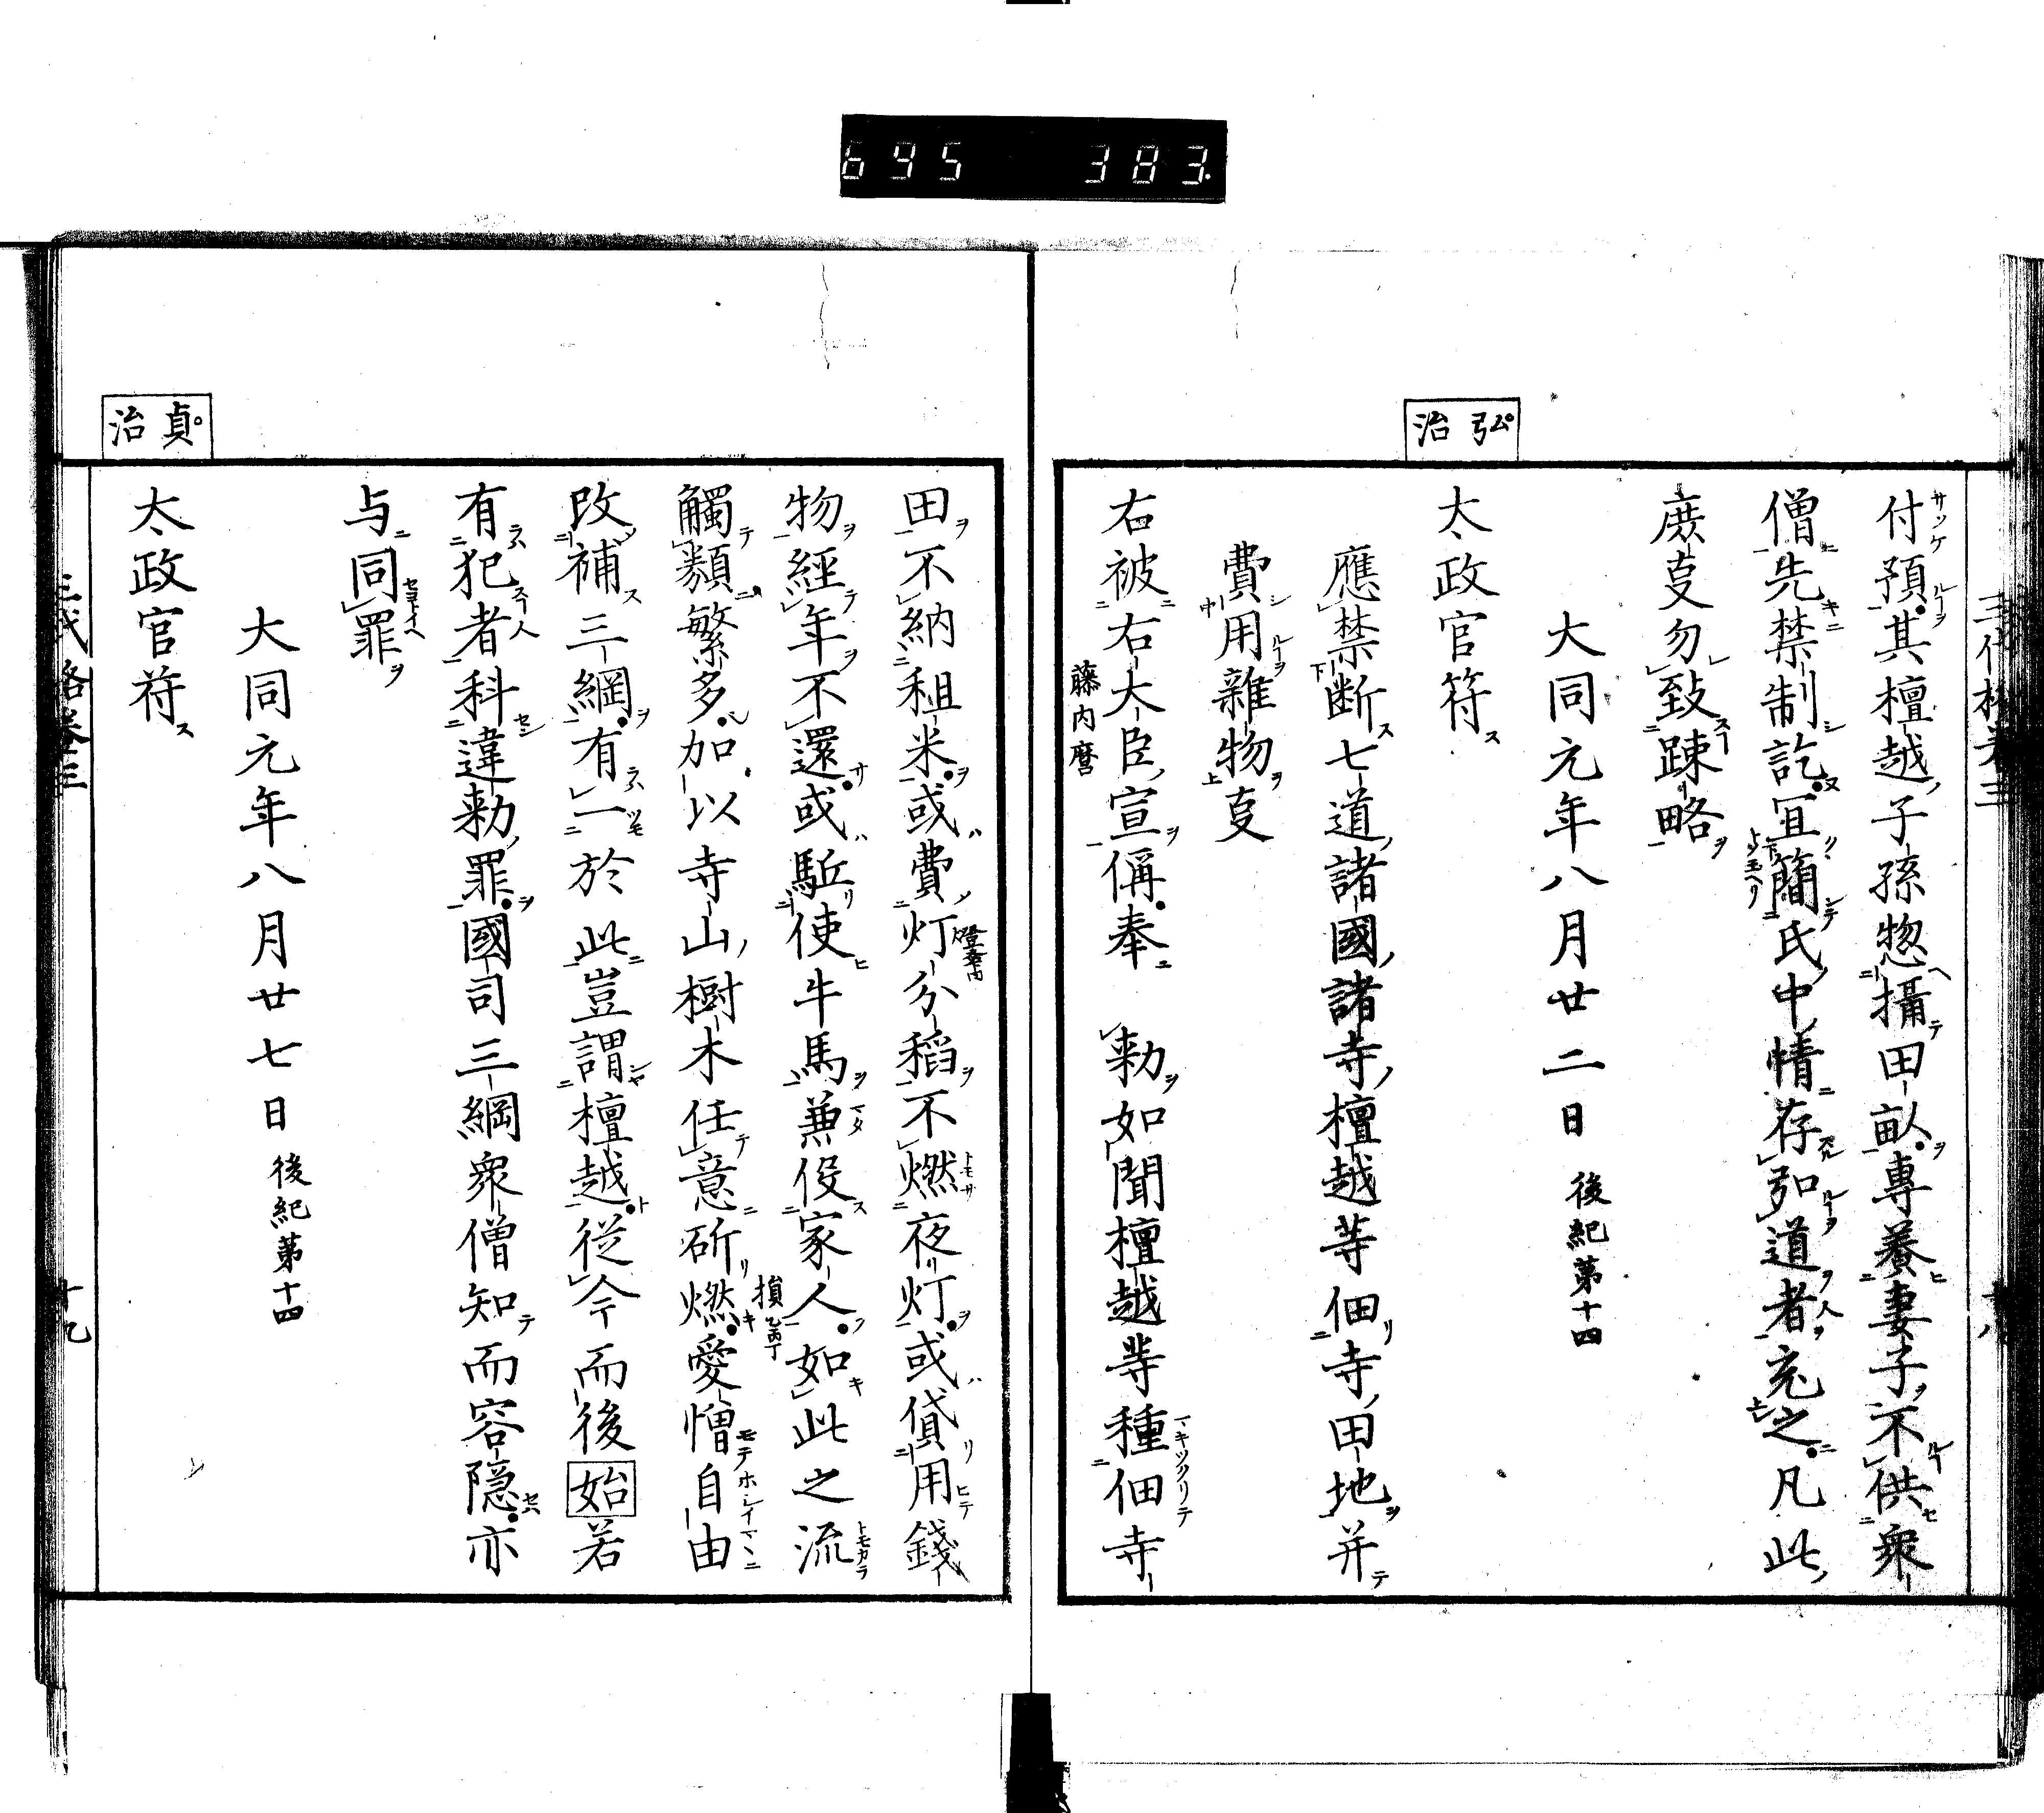 695 383.
弘治
付預其檀越子孫惣攝田畒專養妻子不供衆
僧先禁制訖冝簡氏中情存弘道者充之凡此
庶㕝勿致踈略
大同元年八月廿二日 後紀第十四
太政官符
應禁断七道諸國諸寺檀越等佃寺田地并
費用雜物㕝
右被右大臣宣偁奉 勅如聞檀越等種佃寺
藤内麿
貞治
田不納租米或費灯分稻不燃夜灯或貸用錢
物經年不還或駈使牛馬兼役家人如此之流
觸類繁多加以寺山樹木任意斫燃愛憎自由
損乙丙丁
改補三綱有一於此豈謂檀越從今而後始若
有犯者科違勅罪國司三綱衆僧知而容隠亦
与同罪
大同元年八月廿七日 後紀第十四
太政官符